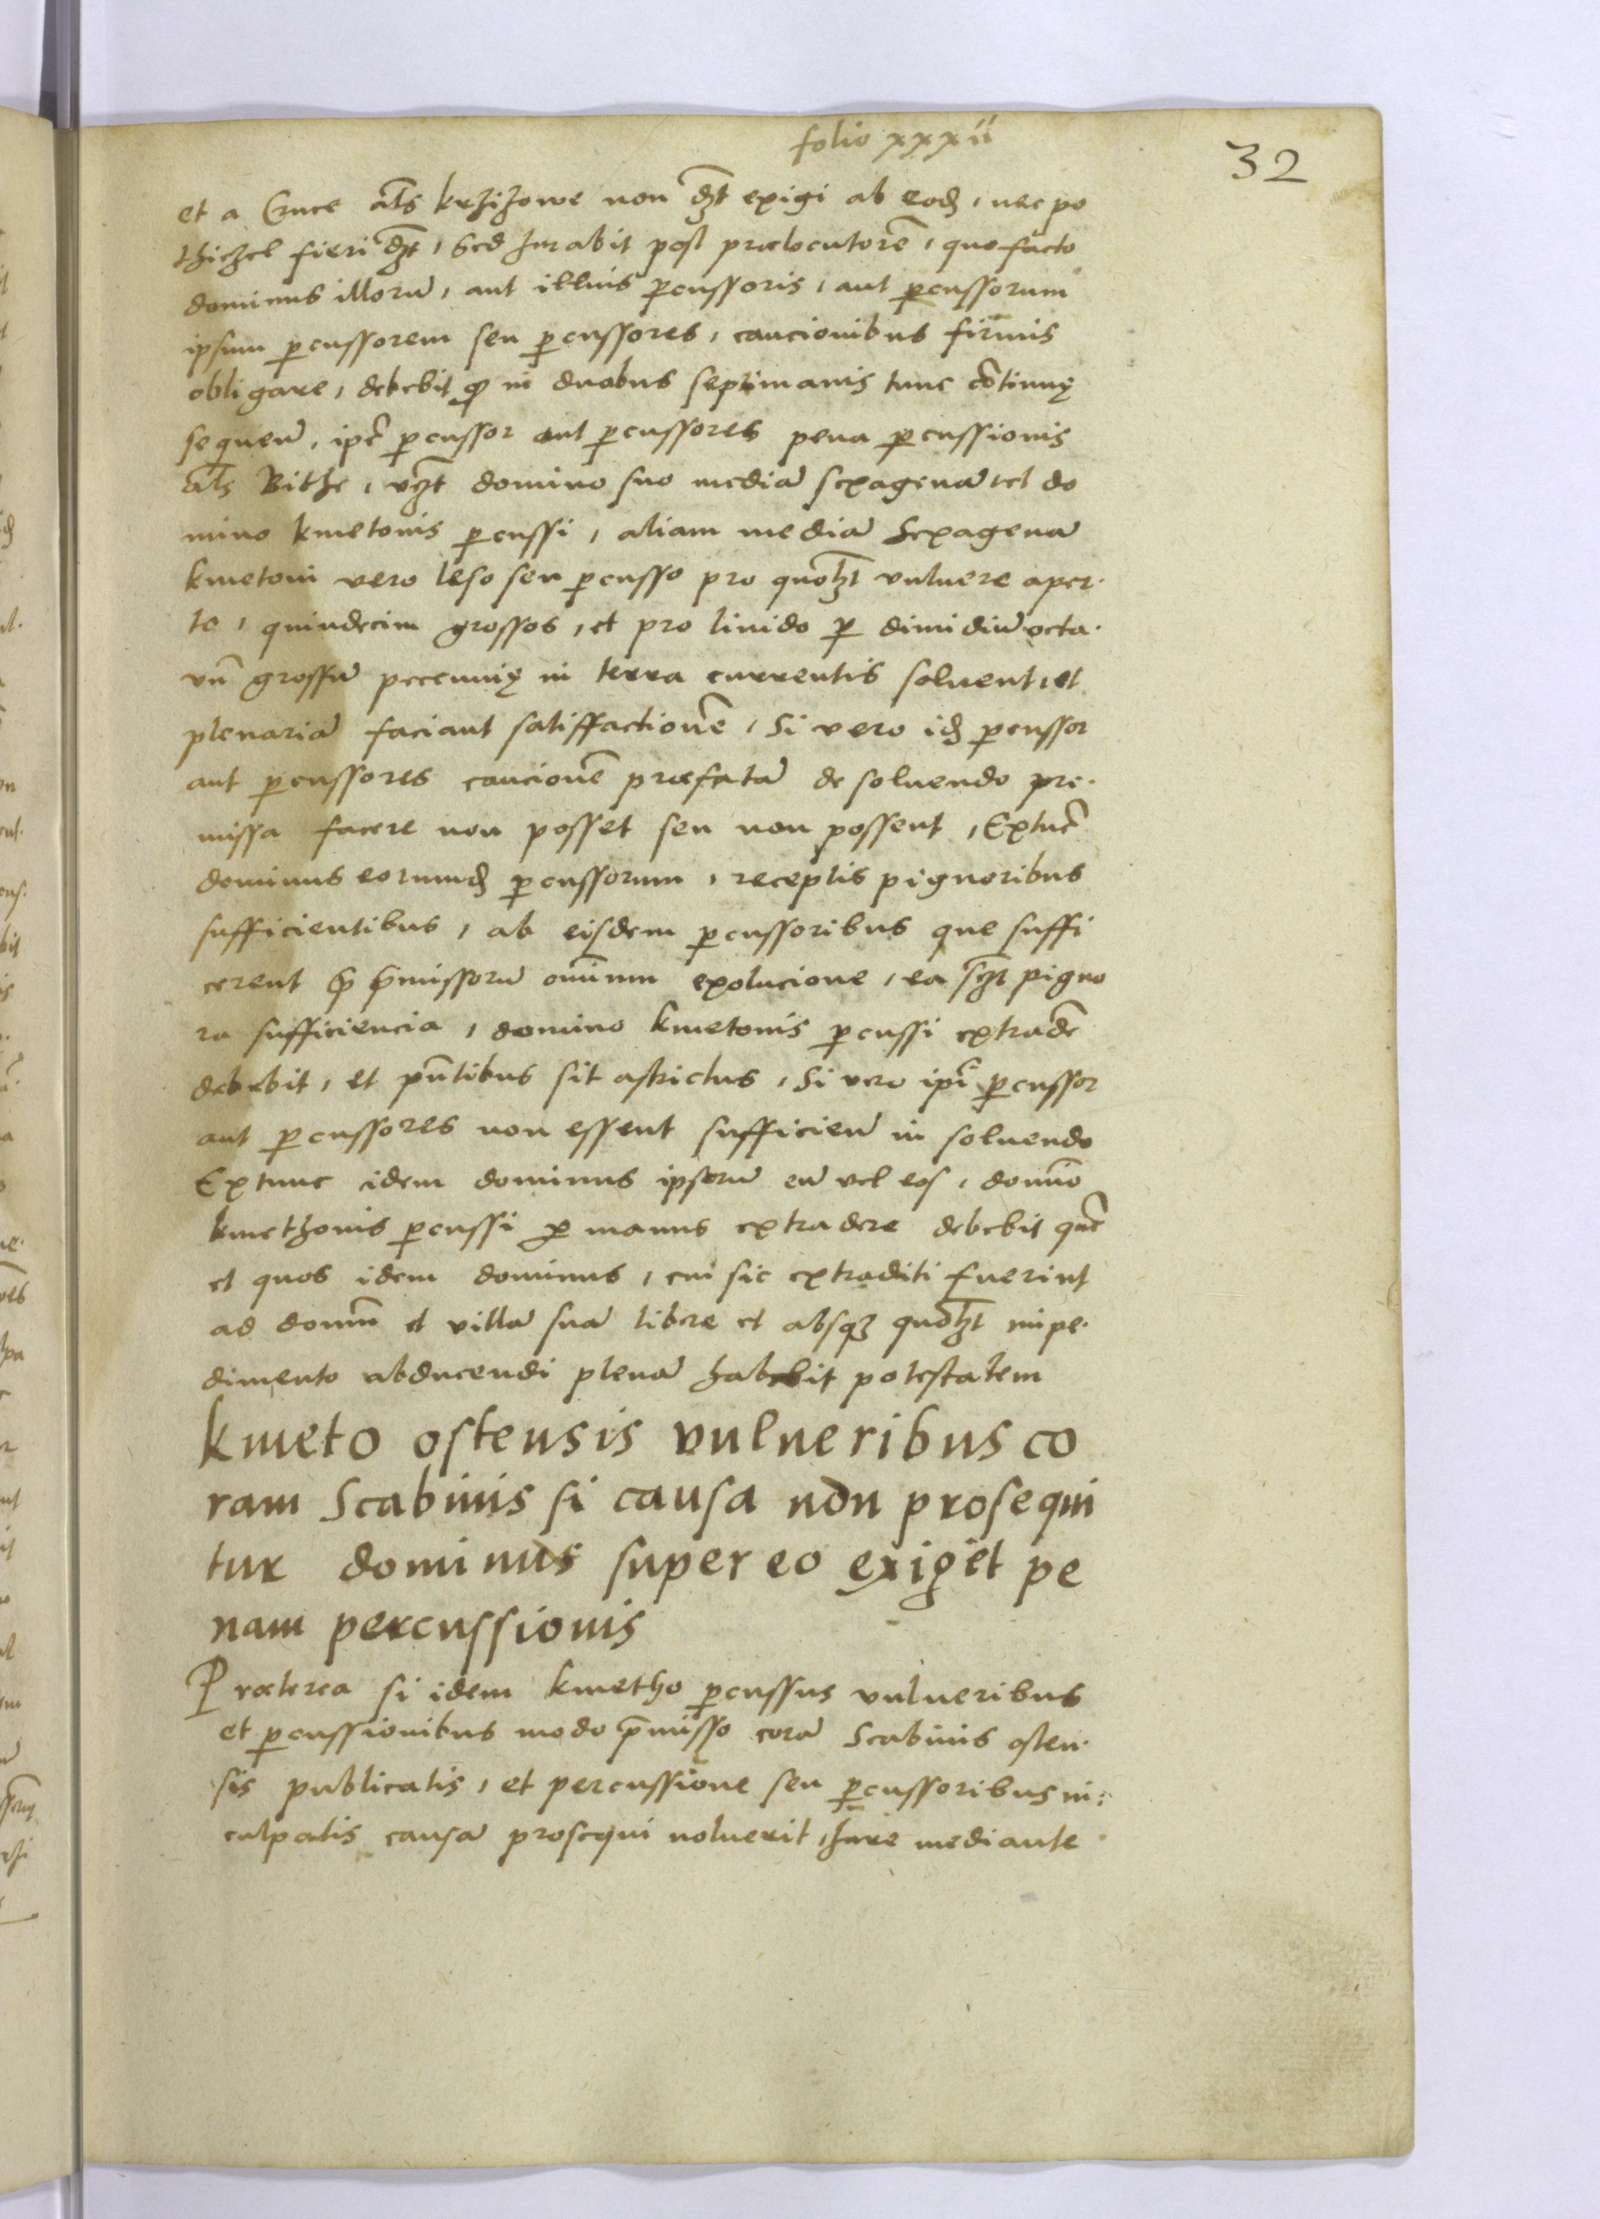 folio xxxii
32
et a Cruce al͞s krzizowe non d͞zt exigi ab eod͛, nec po
thiczel fieri d͞zt, Sed Jurabit post prælocutorē, quo facto
dominus illorū, aut illius ꝑcussoris, aut ꝑcussorum
ipsum ꝑcussorem seu ꝑcussores, caucionibus firmis
obligare, debebit ꝙ in duabus septimanis tunc cōtinuę
sequeñ, ip̄e ꝑcussor aut ꝑcussores pena ꝑcussionis
al͞s Bithe, vz͞t domino suo mediā sexagenā vel do
mino kmetonis ꝑcussi, aliam mediā Sexagenā
kmetoni vero leso seu ꝑcusso pro quoł͞zt vulnere aper-
to, quindecim grossos, et pro livido ꝑ dimidiū octa-
vū grossū peccunię in terra currentis soluent, et
plenariā faciant satisfactionē, Si vero id͛ ꝑcussor
aut ꝑcussores caucionē præfatā de soluendo pre-
missa facere non posset seu non possent, Extūc
dominus eorumd͛ ꝑcussorum, receptis pignoribus
sufficientibus, ab eisdem ꝑcussoribus que suffi
cerent ꝓ p̄missorū omniū exolucione, ea sc͞zt pigno
ra sufficiencia, domino kmetonis ꝑcussi extradē
debebit, et pn̄tibus sit astrictus, Si vero ip̄i ꝑcussor
aut ꝑcussores non essent sufficieñ in soluendo
Extunc idem dominus ipsorū eū vel eos, domīo
kmethonis ꝑcussi ꝑ manus extradere debebit quē
et quos idem dominus, cui sic extraditi fuerint
ad domū et villā suā libere et absqꝫ quoł͞zt impe-
dimento abducendi plenā habebit potestatem
kmeto ostensis vulneribus co
ram Scabinis si causa non prosequi
tur dominus super eo exiget pe
nam percussionis
Præterea si idem kmetho ꝑcussus vulneribus
et ꝑcussionibus modo p̄misso corā Scabinis osten-
sis publicatis, et percussione seu ꝑcussoribus in-
culpatis causā prosequi noluerit, Jure mediante